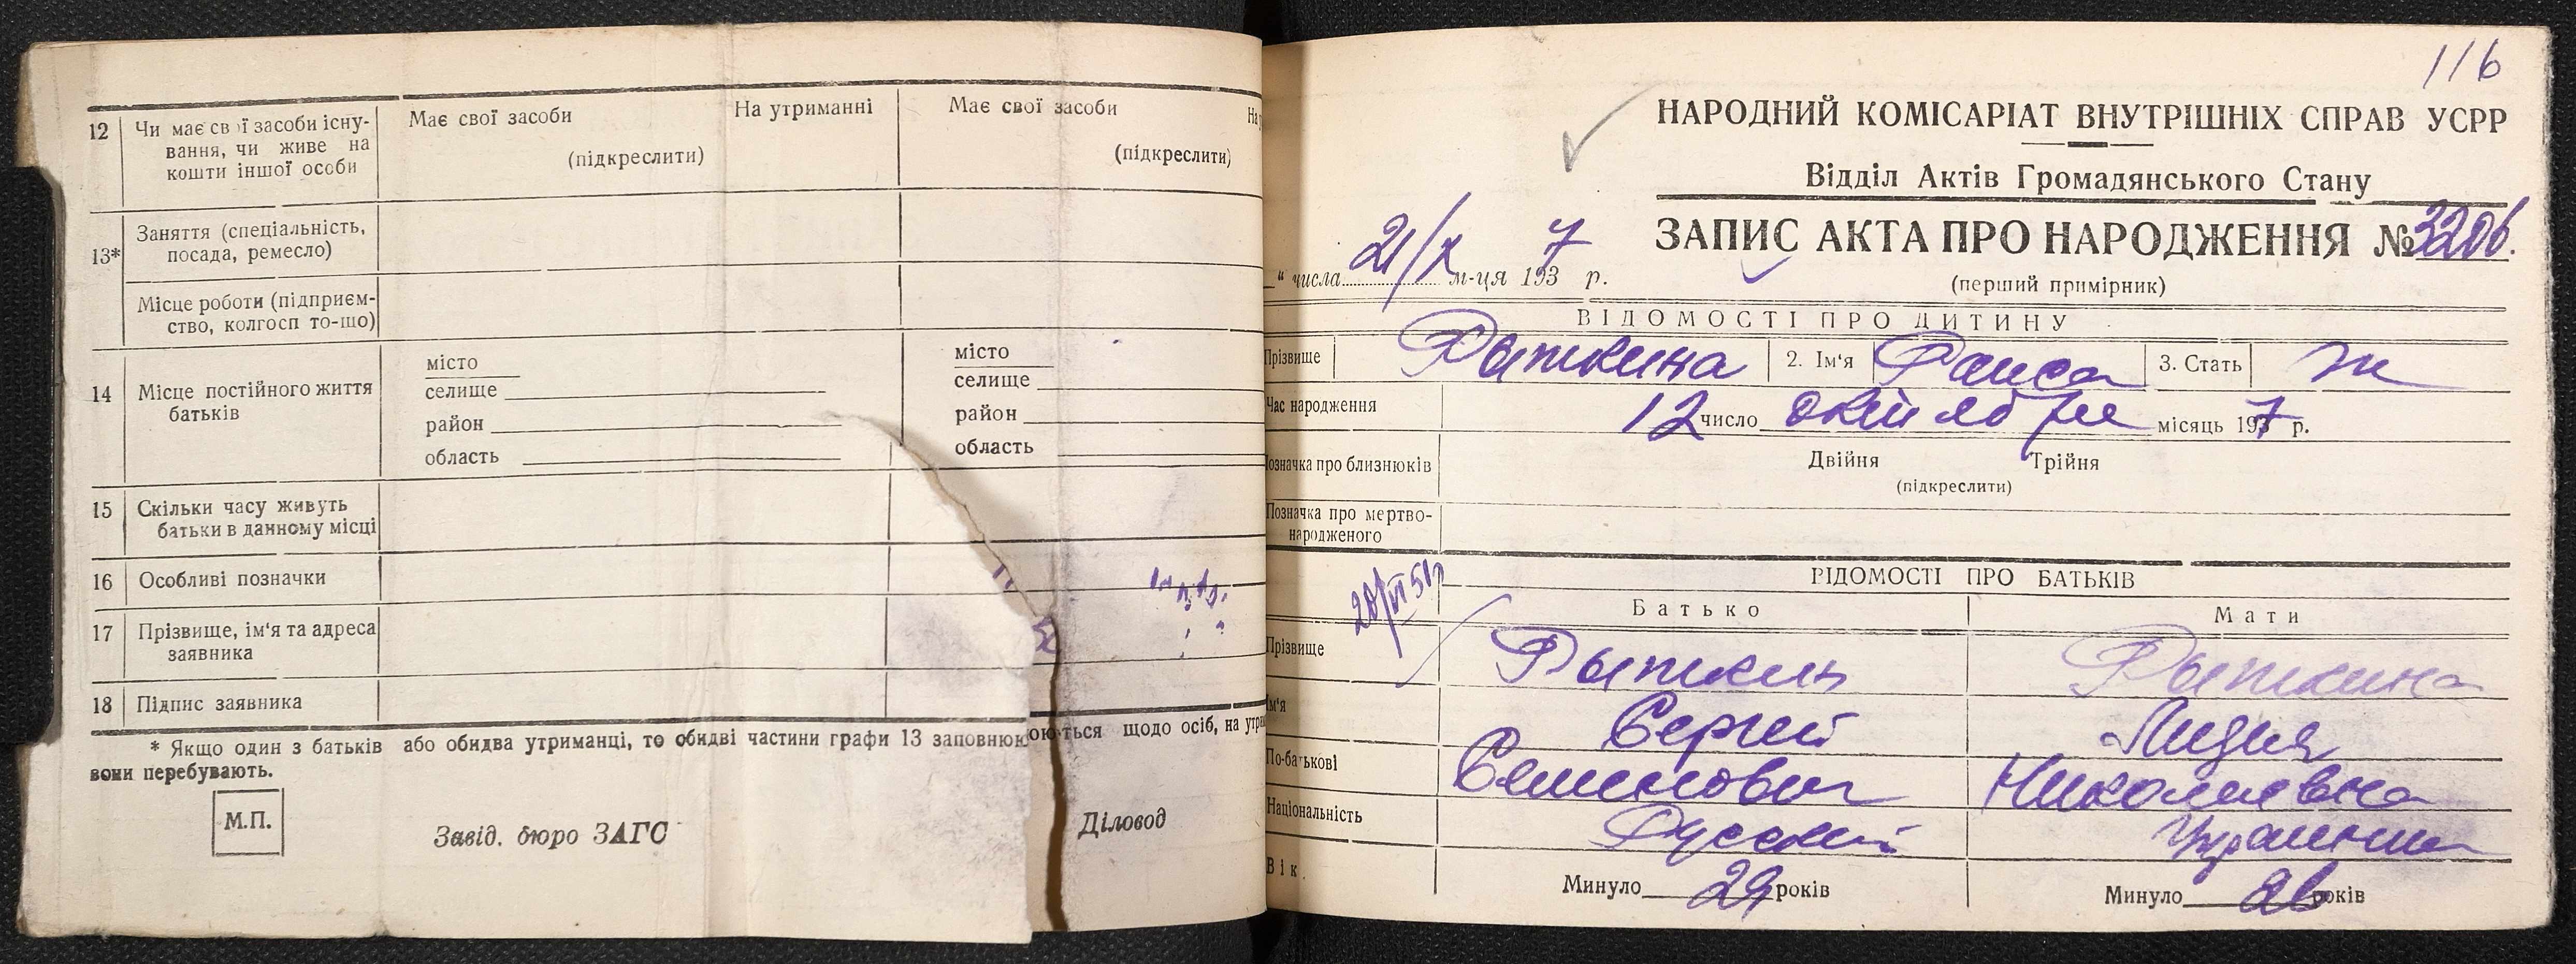 12 Чи має свої засоби існу-
вання, чи живе на
кошти іншої особи
Має свої засоби На утриманні
(підкреслити)
Має свої засоби
(підкреслити)
13* Заняття (спеціальність,
посада, ремесло)
Місце роботи (підприєм-
ство, колгосп то-що)
14 Місце постійного життя
батьків
місто
селище
район
область
місто
селище
район
область
15 Скільки часу живуть
батьки в данному місці
16 Особливі позначки
17 Прізвище, ім'я та адреса
заявника
18 Підпис заявника
* Якщо один з батьків або обидва утриманці, то обидві частини графи 13 заповнюються щодо осіб, на
вони перебувають.
М.П.
Завід. бюро ЗАГС
Діловод
116
НАРОДНИЙ КОМІСАРІАТ ВНУТРІШНІХ СПРАВ УСРР
Відділ Актів Громадянського Стану
ЗАПИС АКТА ПРО НАРОДЖЕННЯ № 3206.
„ числа 21/X м-ця 1937 р.
(перший примірник)
ВІДОМОСТІ ПРО ДИТИНУ
Прізвище Рыжкина 2. Ім'я Раиса 3. Стать ж
Час народження 12 число октября місяць 1937 р.
Позначка про близнюків Двійня Трійня
(підкреслити)
Позначка про мертво-
народженого
20/VI 51р
ВІДОМОСТІ ПРО БАТЬКІВ
Батько Мати
Прізвище Рыжкин Рыжкина
Ім'я Сергей Лидия
По-батькові Семенович Николаевна
Національність Русский Украинка
Вік. Минуло 29 років Минуло 26 років